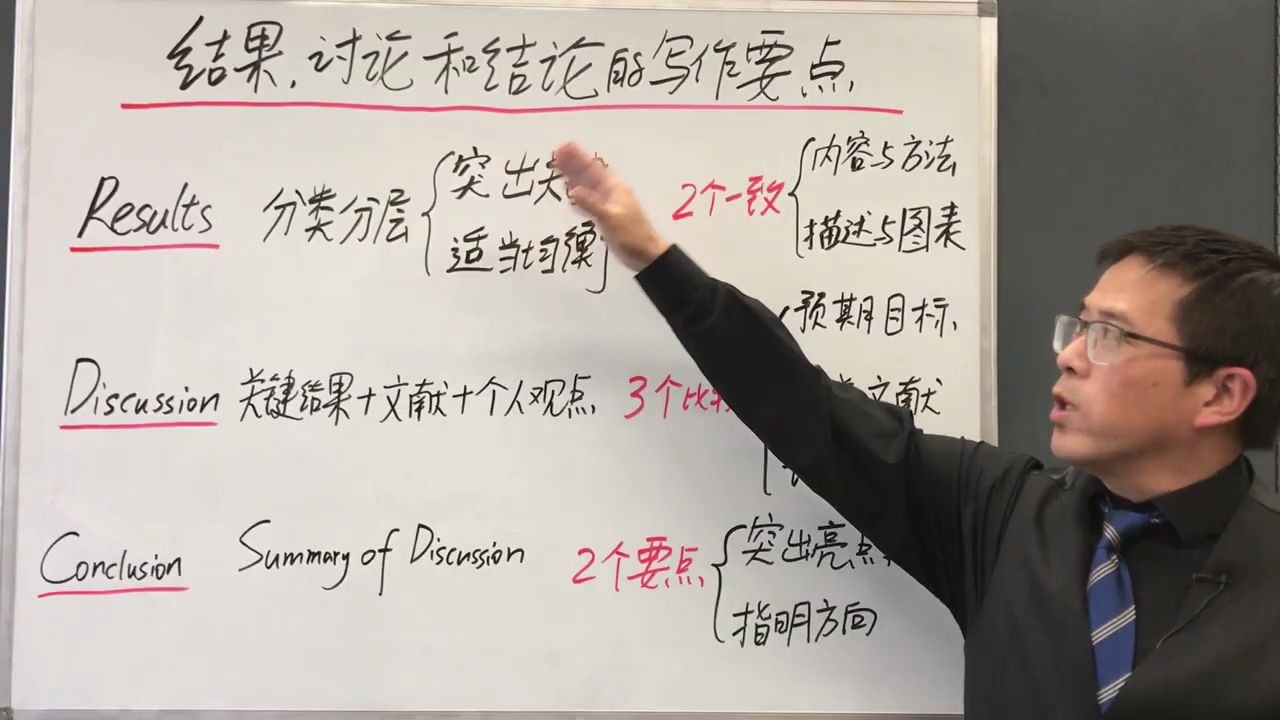 结果,讨论和结论的写作要点.
Results 分类分层 突出 2个一致 内容与方法
适当均衡 描述与图表
预期目标.
Discussion 关键结果+文献+个人观点. 3个比 文献
Conclusion Summary of Discussion 2个要点 突出亮点
指明方向